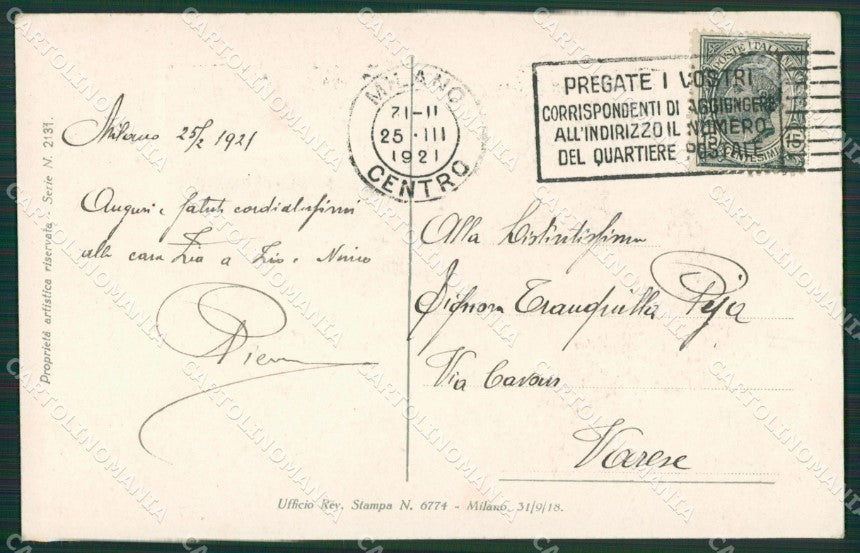 Proprietà artistica riservata - Serie N. 2131.
Milano 25/2 1921
Auguri e saluti cordialissimi
alla cara Zia a Zio e Nino
MILANO
21-II
25 · III
1921
CENTRO
PREGATE I VOSTRI
CORRISPONDENTI DI AGGIUNGERE
ALL'INDIRIZZO IL NUMERO
DEL QUARTIERE POSTALE
POSTE ITALIANE
15
CENTESIMI
Alla Distintissima
Signora Tranquilla
Via Cavour
Varese
Ufficio Rev. Stampa N. 6774 - Milano, 31/9/18.
CARTOLINOMANIA